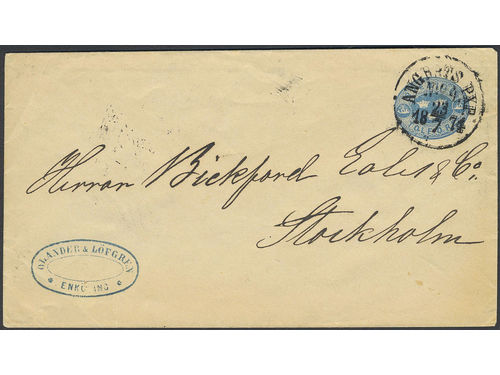 ÅNGBÅTS PXP
23
18 7 74
Herrar Bickford Eales & Co.
Stockholm
OLANDER & LÖFGREN
ENKÖPING